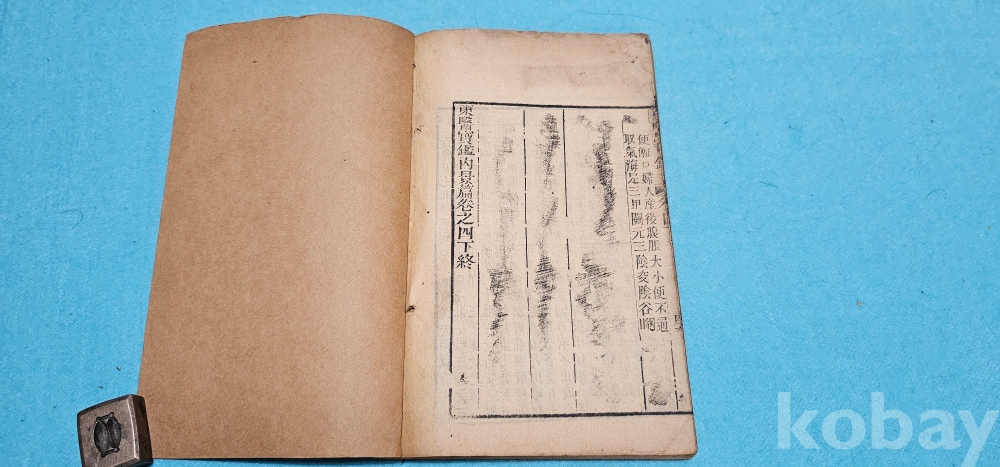 便䘐○婦人産後腹脹大小便不通
取氣海足三里關元三陰交陰谷
東醫寶鑑內景篇卷之四下終
kobay